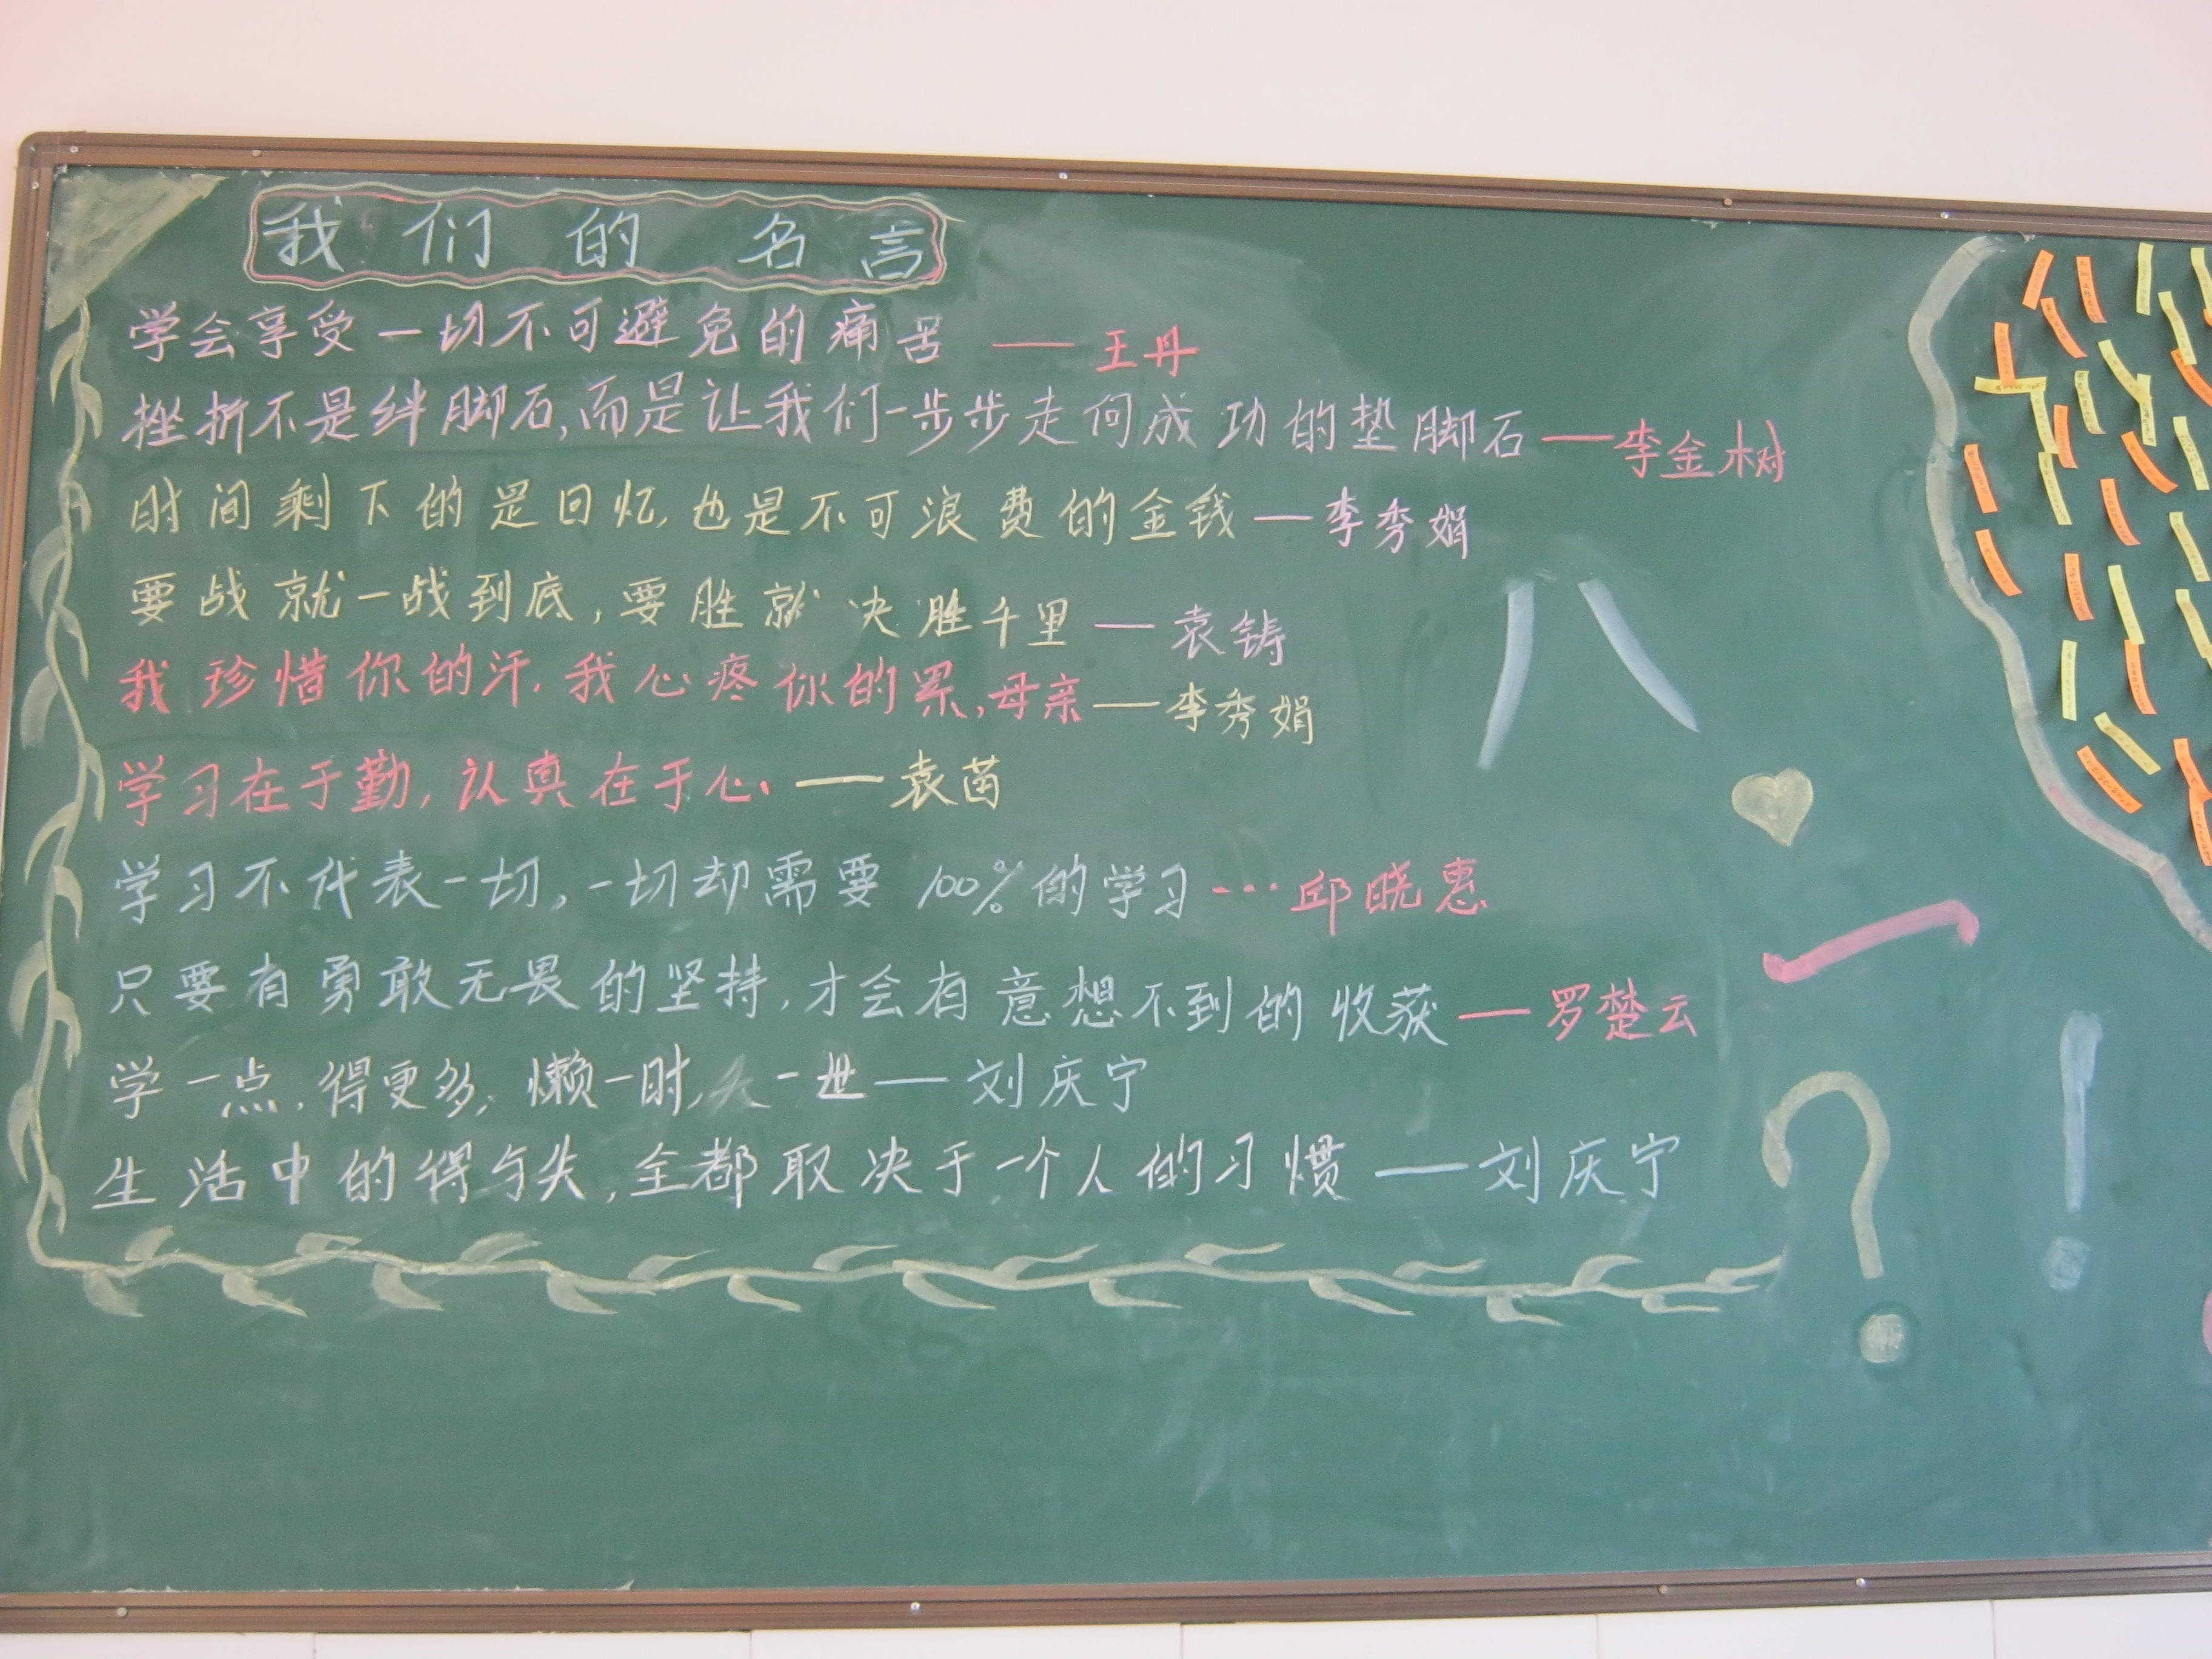 我们的名言
学会享受一切不可避免的痛苦 —— 王丹
挫折不是绊脚石,而是让我们一步步走向成功的垫脚石——李金树
时间剩下的是回忆,也是不可浪费的金钱——李秀娟
要战就一战到底,要胜就决胜千里——袁铸
我珍惜你的汗,我心疼你的累,母亲——李秀娟
学习在于勤,认真在于心.——袁茵
学习不代表一切,一切却需要100%的学习…邱晓惠
只要有勇敢无畏的坚持,才会有意想不到的收获——罗楚云
学一点,得更多;懒一时,一世——刘庆宁
生活中的得与失,全都取决于一个人的习惯——刘庆宁
八
一
?
!